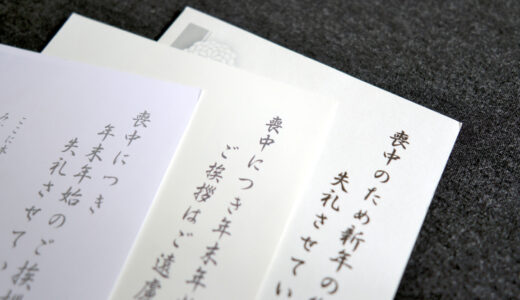 喪中のため新年の
失礼させてい
喪中につき年末年
ご挨拶はご遠慮
喪中につき
年末年始のご挨
失礼させてい